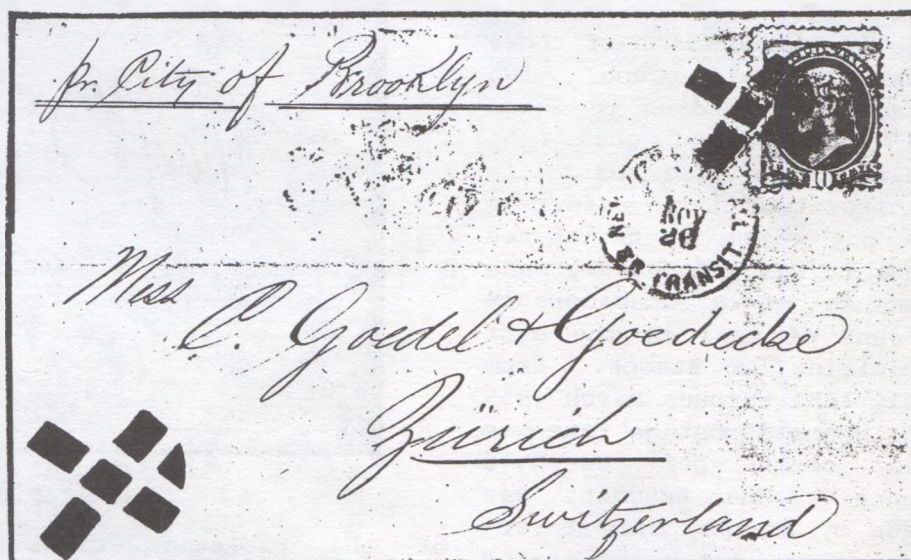 pr. City of Brooklyn
10
NEW YORK
NOV
28
BR. TRANSIT
Mess
C. Goedel & Goedecke
Zürich
Switzerland